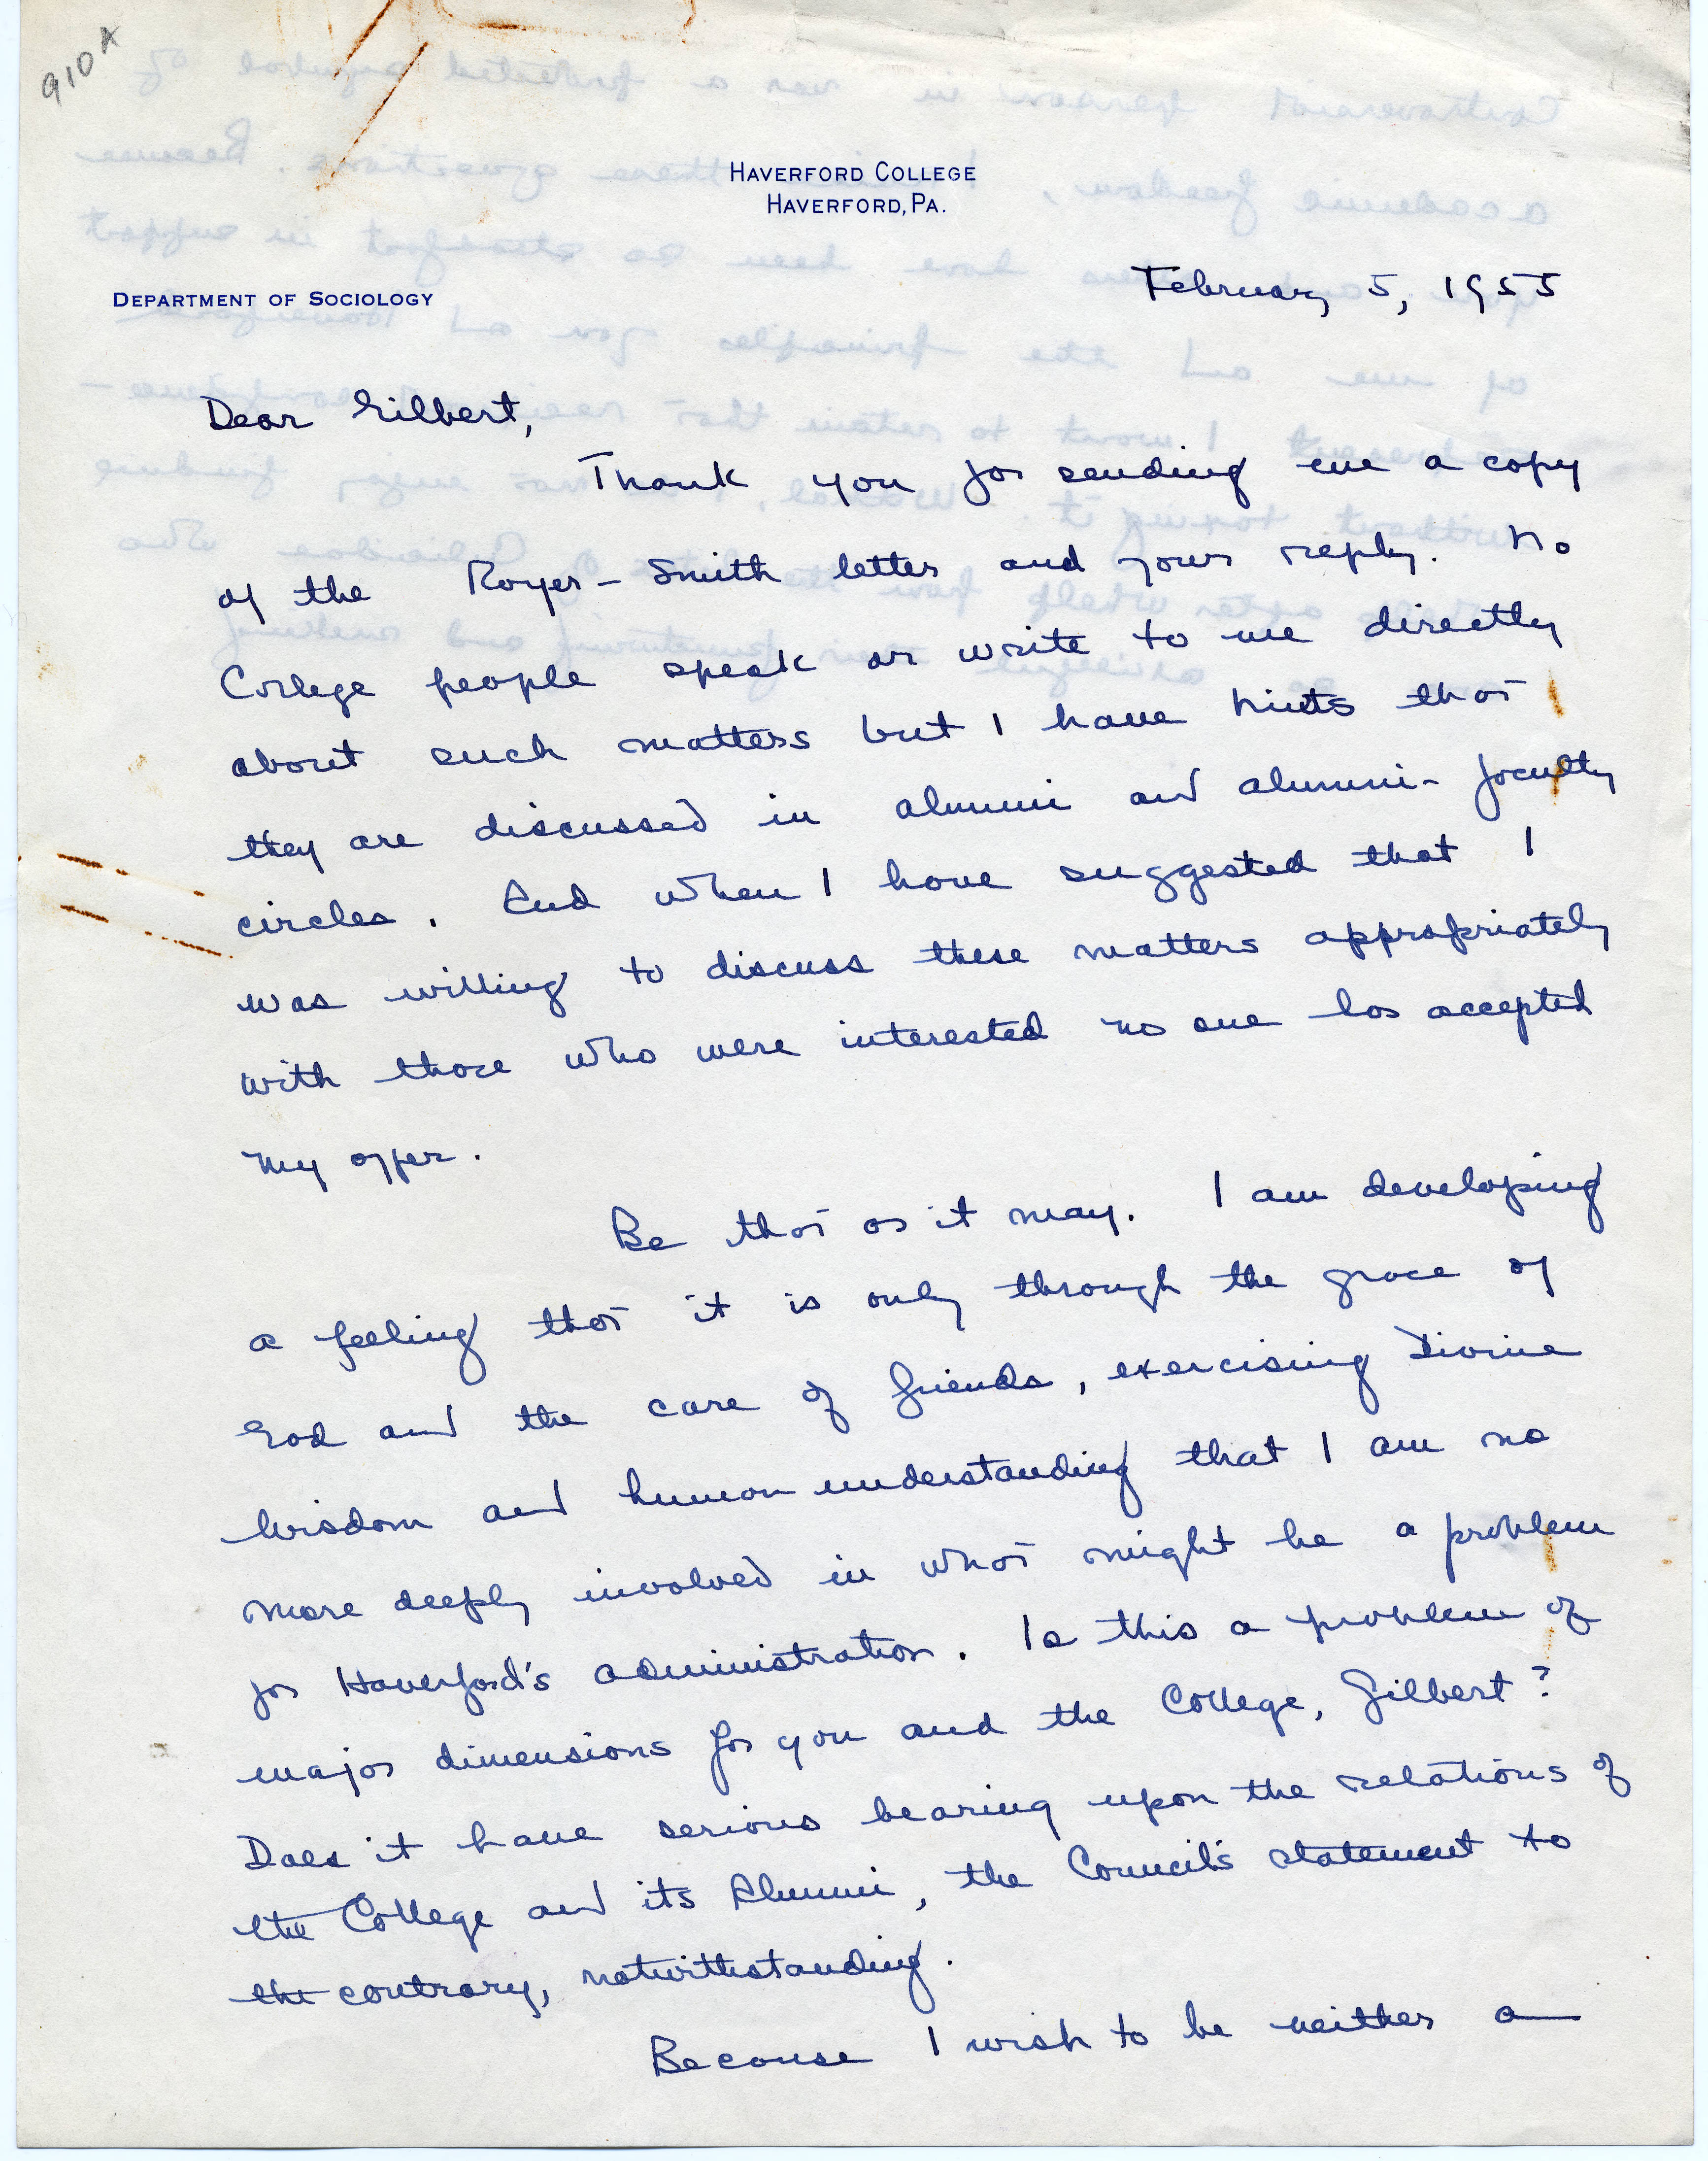 910A
HAVERFORD COLLEGE
HAVERFORD, PA.
DEPARTMENT OF SOCIOLOGY
February 5, 1955
Dear Gilbert,
Thank you for sending me a copy
of the Royer-Smith letter and your reply. No
College people speak or write to me directly
about such matters but I have hints that
they are discussed in alumni and alumni-faculty
circles. And when I have suggested that I
was willing to discuss these matters appropriately
with those who were interested no one has accepted
my offer.
Be that as it may. I am developing
a feeling that it is only through the grace of
God and the care of friends, exercising Divine
wisdom and human understanding that I am no
more deeply involved in what might be a problem
for Haverford's administration. Is this a problem of
major dimensions for you and the College, Gilbert?
Does it have serious bearing upon the relations of
the College and its Alumni, the Council's statement to
the contrary, notwithstanding.
Because I wish to be neither a